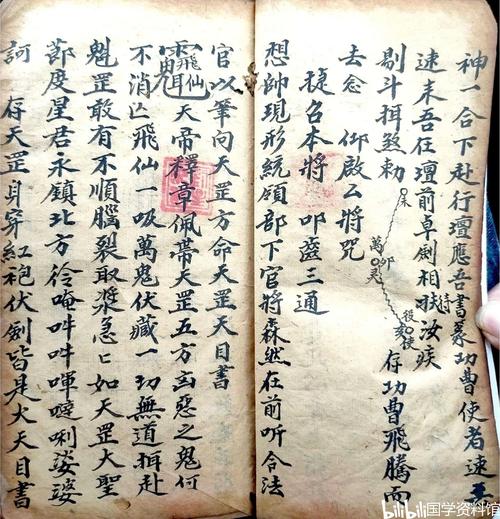 神一合下赴行壇應吾書篆功曹使者速至
速来吾在壇前卓劍相狀待汝疾
剔斗揖煞勅 存功曹飛騰而
去念 仰啟厶將咒
猛召本將 叩齒三通
想帥現形統領部下官將森然在前听合法
官以筆向天罡方命天罡天目書
天帝釋章佩帶天罡五方凶惡之鬼何
不消亡飛仙一吸萬鬼伏藏一切無道揖赴
魁罡敢有不順腦裂取漿急匕如天罡大聖
酆度星君永鎮北方唵吽吽㖶㘑唎娑婆
訶 存天罡身穿紅袍伏劍皆是火天目書
bilibili 国学资料馆